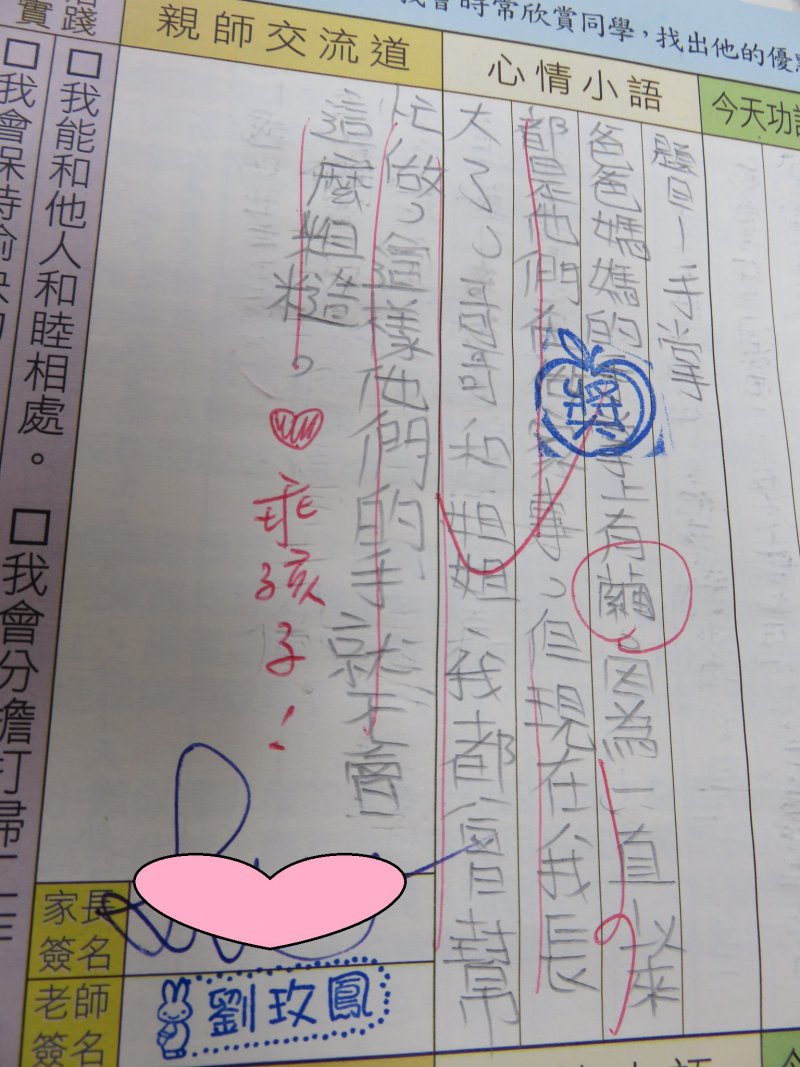 我會時常欣賞同學，找出他的優
今天功
心情小語
題目—手掌
爸爸媽媽的手掌上有繭。因為一直以來
都是他們在做家事。但現在我長
大了，哥哥和姐姐、我都會幫
忙做，這樣他們的手就不會
這麼粗糙。
獎
乖孩子！
親師交流道
家長
簽名
老師
簽名
劉玫鳳
踐
實
□我能和他人和睦相處。 □我會分擔打掃工作
□我會保持愉快